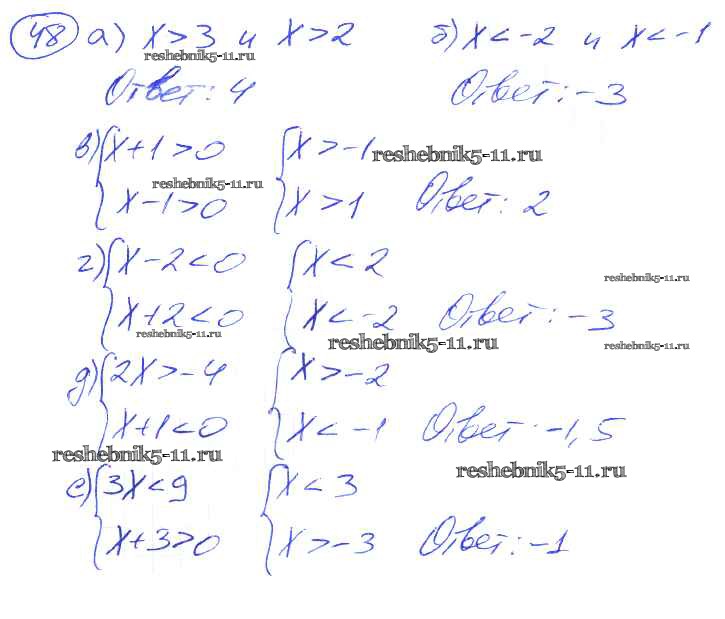 48 а) x > 3 и x > 2 б) x < -2 и x < -1
reshebnik5-11.ru
Ответ: 4 Ответ: -3
в) { x + 1 > 0 { x > -1 reshebnik5-11.ru
reshebnik5-11.ru
x - 1 > 0 x > 1 Ответ: 2
г) { x - 2 < 0 { x < 2
reshebnik5-11.ru
x + 2 < 0 x < -2 Ответ: -3
reshebnik5-11.ru reshebnik5-11.ru reshebnik5-11.ru
д) { 2x > -4 { x > -2
x + 1 < 0 x < -1 Ответ: -1,5
reshebnik5-11.ru reshebnik5-11.ru
е) { 3x < 9 { x < 3
x + 3 > 0 x > -3 Ответ: -1